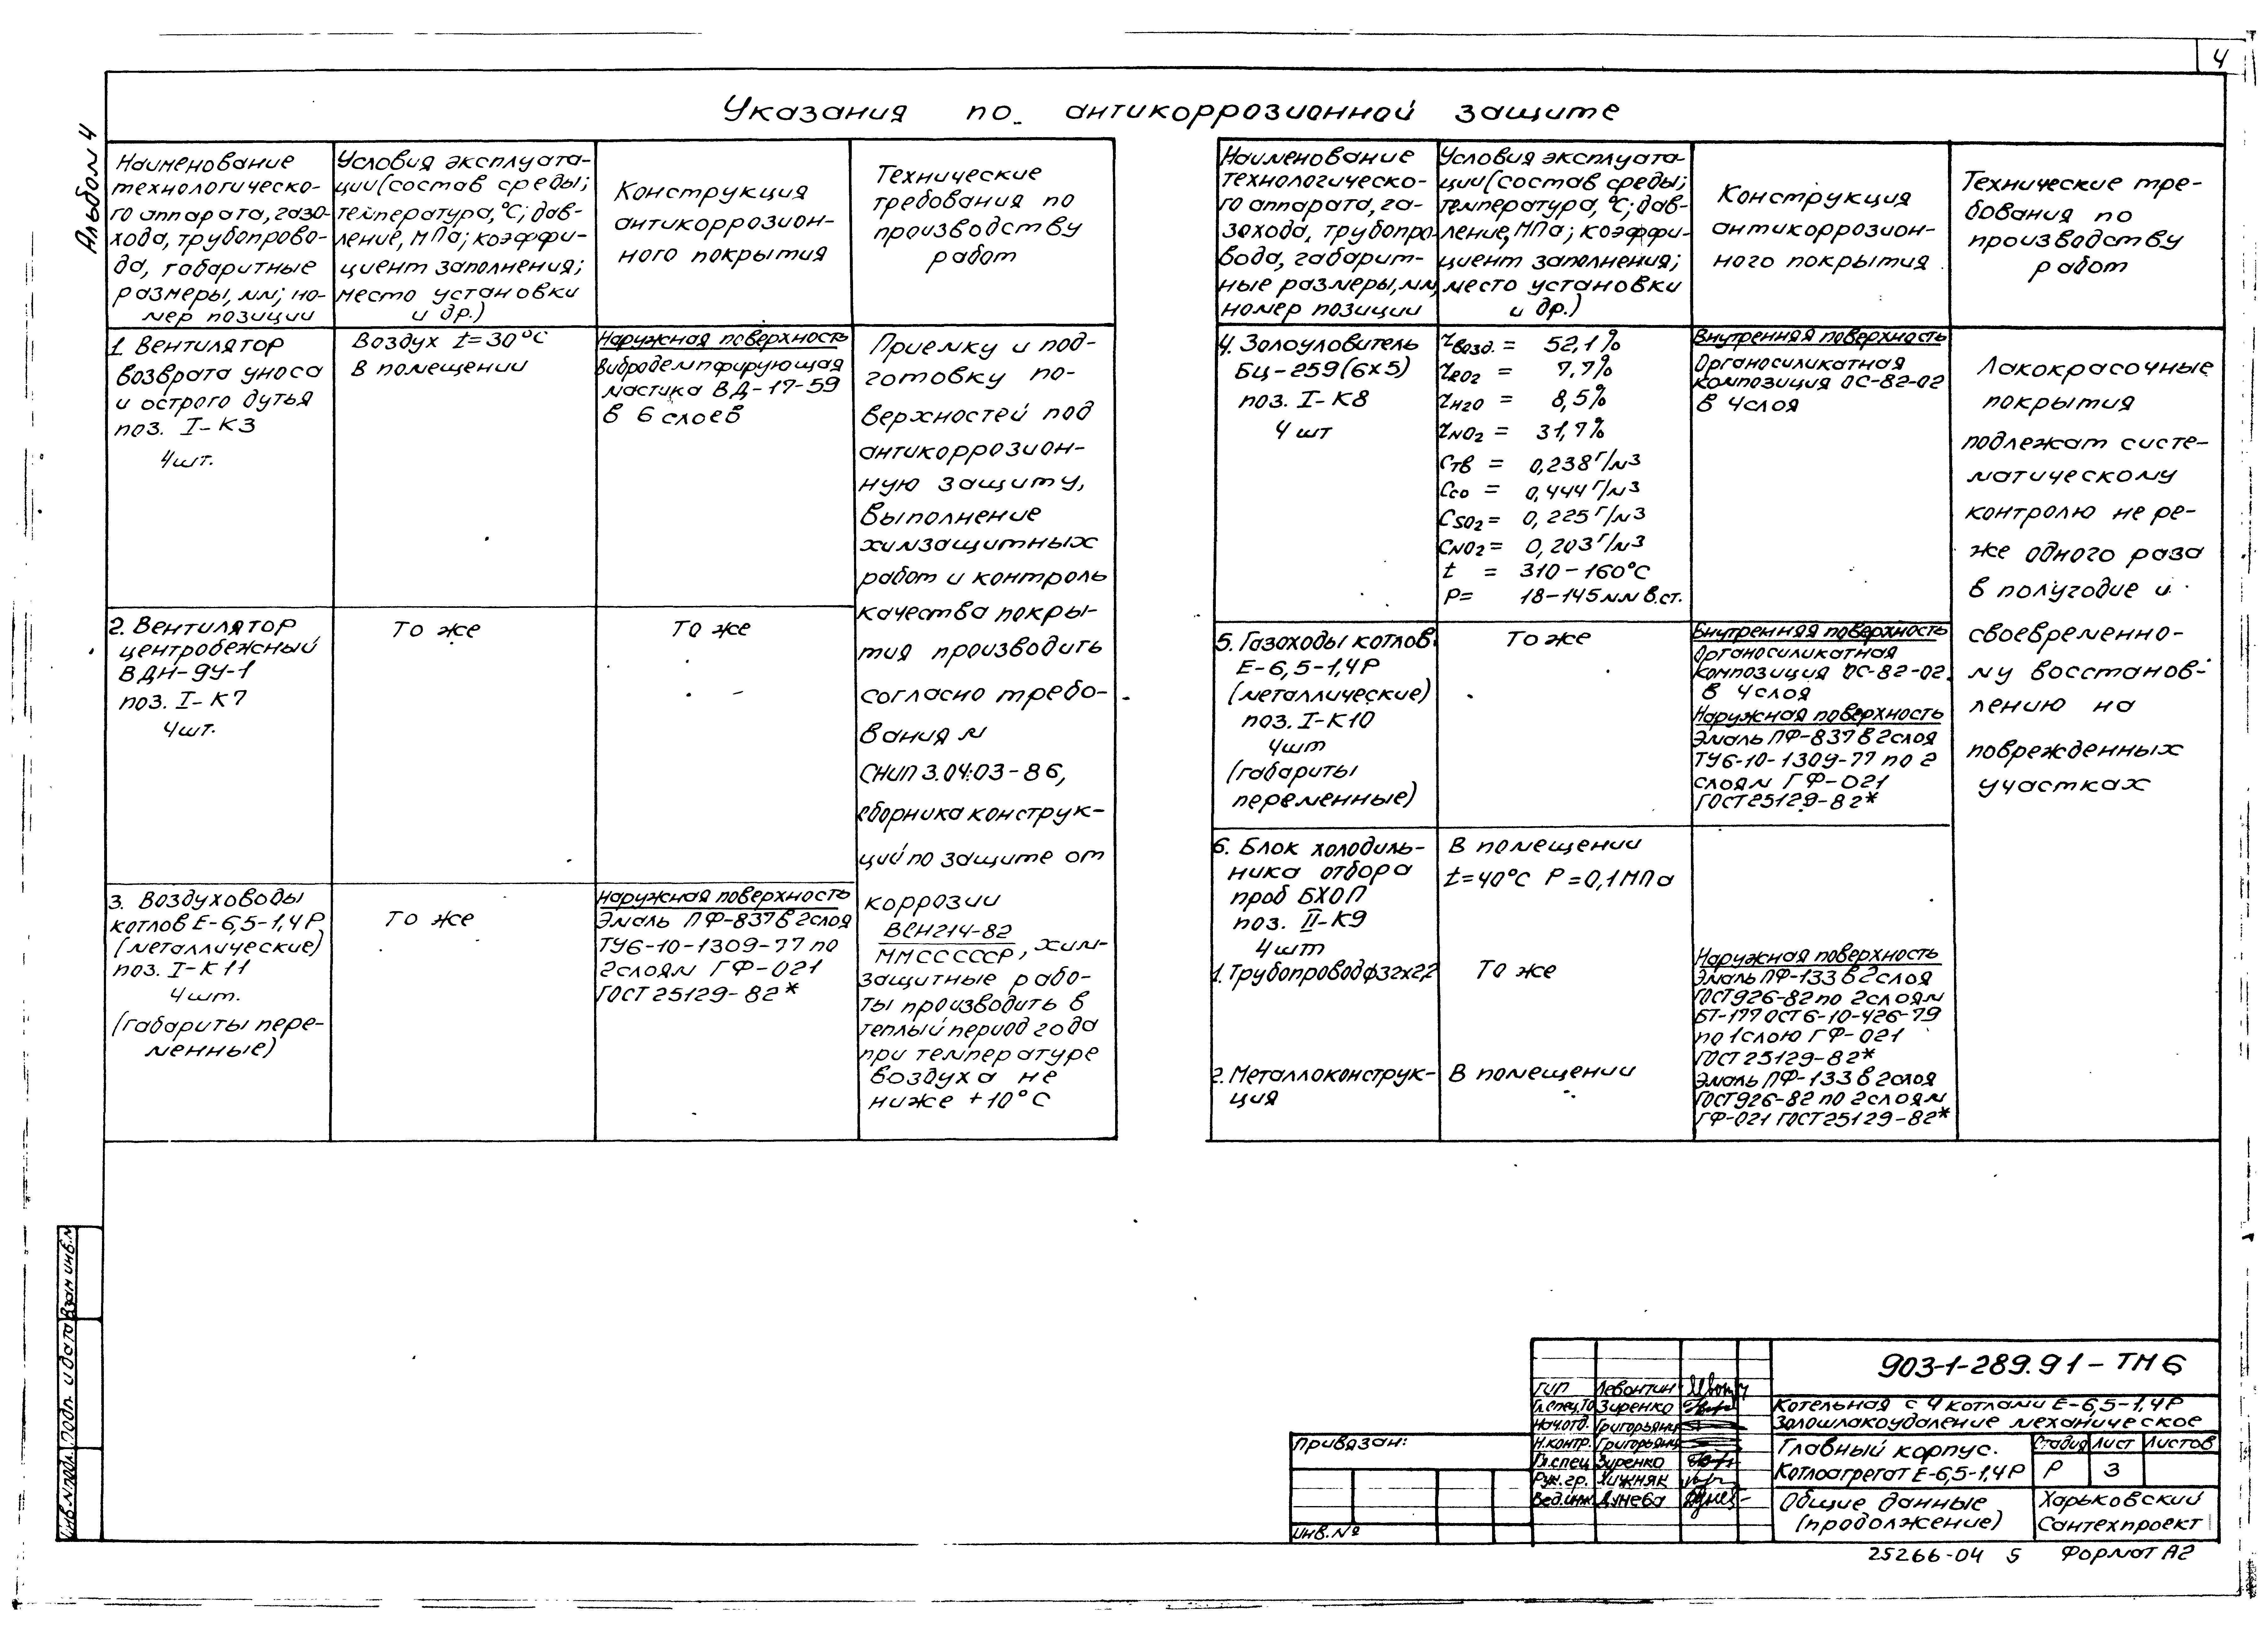 4
Альбом 4
Указания по антикоррозионной защите
Наименование
технологическо-
го аппарата, газо-
хода, трубопрово-
да, габаритные
размеры, мм; но-
мер позиции
Условия эксплуата-
ции (состав среды;
температура, °С; дав-
ление, МПа; коэффи-
циент заполнения;
место установки
и др.)
Конструкция
антикоррозион-
ного покрытия
Технические
требования по
производству
работ
1. Вентилятор
возврата уноса
и острого дутья
поз. I-К3
4шт.
Воздух t=30°С
В помещении
Наружная поверхность
Вибродемпфирующая
мастика ВД-17-59
в 6 слоев
2. Вентилятор
центробежный
ВДН-9У-1
поз. I-К7
4шт.
То же
То же
3. Воздуховоды
котлов Е-6,5-1,4Р
(металлические)
поз. I-К11
4шт.
(габариты пере-
менные)
То же
Наружная поверхность
Эмаль ПФ-837 в 2слоя
ТУ6-10-1309-77 по
2слоям ГФ-021
ГОСТ 25129-82*
Приемку и под-
готовку по-
верхностей под
антикоррозион-
ную защиту,
выполнение
химзащитных
работ и контроль
качества покры-
тия производить
согласно требо-
ваниям
СНиП 3.04:03-86,
сборника конструк-
ций по защите от
коррозии
ВСН214-82
ММССССР, хим-
защитные рабо-
ты производить в
теплый период года
при температуре
воздуха не
ниже +10°С
Наименование
технологическо-
го аппарата, га-
зохода, трубопро-
вода, габарит-
ные размеры, мм,
номер позиции
Условия эксплуата-
ции (состав среды;
температура, °С; дав-
ление, МПа; коэффи-
циент заполнения;
место установки
и др.)
Конструкция
антикоррозион-
ного покрытия
Технические тре-
бования по
производству
работ
4. Золоуловитель
БЦ-259(6х5)
поз. I-К8
4 шт
rвозд. = 52,1%
rRO2 = 7,7%
rH2O = 8,5%
rNO2 = 31,7%
Cтв = 0,238г/м3
Cco = 0,444г/м3
CSO2 = 0,225г/м3
CNO2 = 0,203г/м3
t = 310-160°С
P= 18-145мм в.ст.
Внутренняя поверхность
Органосиликатная
композиция ОС-82-02
в 4слоя
5. Газоходы котлов
Е-6,5-1,4Р
(металлические)
поз. I-К10
4шт
(габариты
переменные)
То же
Внутренняя поверхность
Органосиликатная
композиция ОС-82-02
в 4слоя
Наружная поверхность
Эмаль ПФ-837 в 2слоя
ТУ6-10-1309-77 по 2
слоям ГФ-021
ГОСТ25129-82*
6. Блок холодиль-
ника отбора
проб БХОП
поз. II-К9
4шт
В помещении
t=40°С P=0,1МПа
1. Трубопровод ф32х2,2
То же
Наружная поверхность
Эмаль ПФ-133 в 2слоя
ГОСТ926-82 по 2слоям
БТ-177 ОСТ6-10-426-79
по 1слою ГФ-021
ГОСТ 25129-82*
2. Металлоконструк-
ция
В помещении
Эмаль ПФ-133 в 2слоя
ГОСТ926-82 по 2слоям
ГФ-021 ГОСТ25129-82*
Лакокрасочные
покрытия
подлежат систе-
матическому
контролю не ре-
же одного раза
в полугодие и
своевременно-
му восстанов-
лению на
поврежденных
участках
Взам инв.№
Подп. и дата
Инв.№подл.
Привязан:
Инв.№
ГИП Левонтин
Гл.спец.ТО Зиренко
Нач.отд. Григорьянц
Н.контр. Григорьянц
Гл.спец Зиренко
Рук.гр. Хижняк
Вед.инж Дунева
903-1-289.91-ТМ6
Котельная с 4 котлами Е-6,5-1,4Р
Золошлакоудаление механическое
Главный корпус.
Котлоагрегат Е-6,5-1,4Р
Стадия Лист Листов
Р 3
Общие данные
(продолжение)
Харьковский
Сантехпроект
25266-04 5 Формат А2